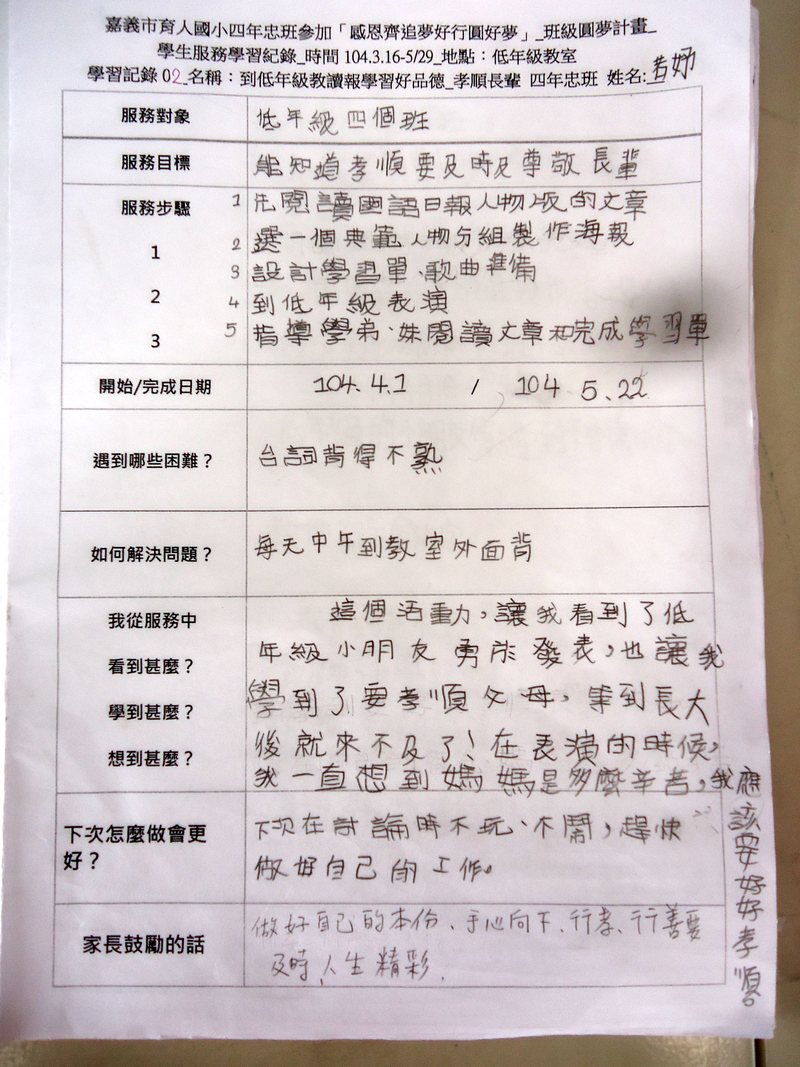 嘉義市育人國小四年忠班參加「感恩齊追夢好行圓好夢」_班級圓夢計畫_
學生服務學習紀錄_時間 104.3.16-5/29_地點：低年級教室
學習記錄 02_名稱：到低年級教讀報學習好品德_孝順長輩 四年忠班 姓名:_若妤
服務對象
低年級四個班
服務目標
能知道孝順要及時及尊敬長輩
服務步驟
1
2
3
1 先閱讀國語日報人物版的文章
2 選一個典範人物分組製作海報
3 設計學習單、歌曲準備
4 到低年級表演
5 指導學弟、妹閱讀文章和完成學習單
開始/完成日期
104.4.1 / 104 5.22
遇到哪些困難？
台詞背得不熟
如何解決問題？
每天中午到教室外面背
我從服務中
看到甚麼？
學到甚麼？
想到甚麼？
這個活動力，讓我看到了低
年級小朋友勇於發表，也讓我
學到了要孝順父母，等到長大
後就來不及了！在表演的時候，
我一直想到媽媽是多麼辛苦，我應
該要好好孝順。
下次怎麼做會更
好？
下次在討論時不玩、不鬧，趕快
做好自己的工作。
家長鼓勵的話
做好自己的本份、手心向下、行孝、行善要
及時，人生精彩.